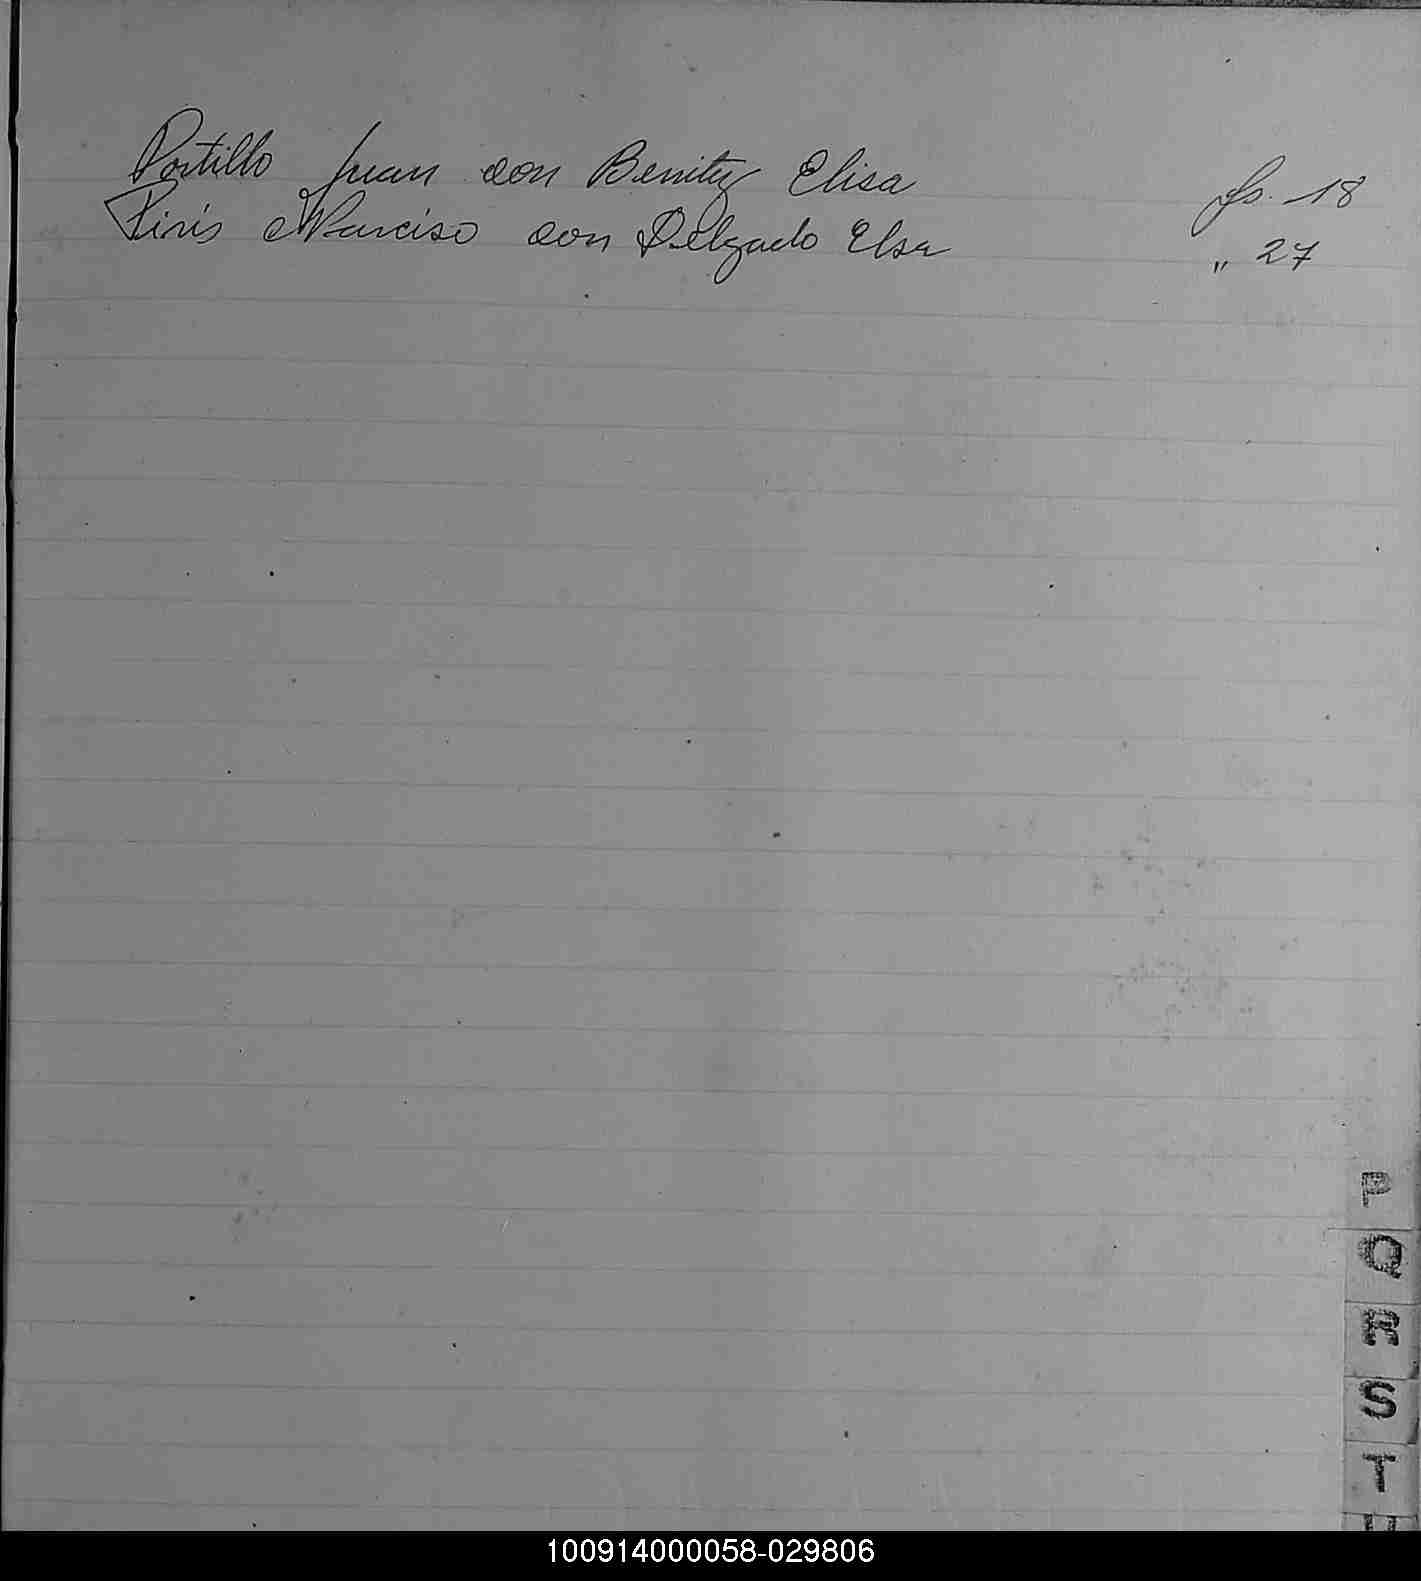 Portillo Juan con Benitez Elisa fs. 18
Piris Narciso con Delgado Elsa " 27
P
Q
R
S
T
U
100914000058-029806